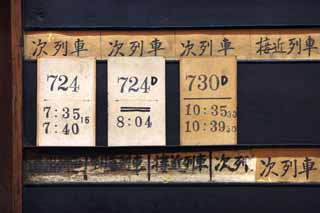 次列車 次列車 次列車 接近列車
724 724D 730D
7:35 15 8:04 10:35 30
7:40 10:39 30
接近列車 次列 次列車